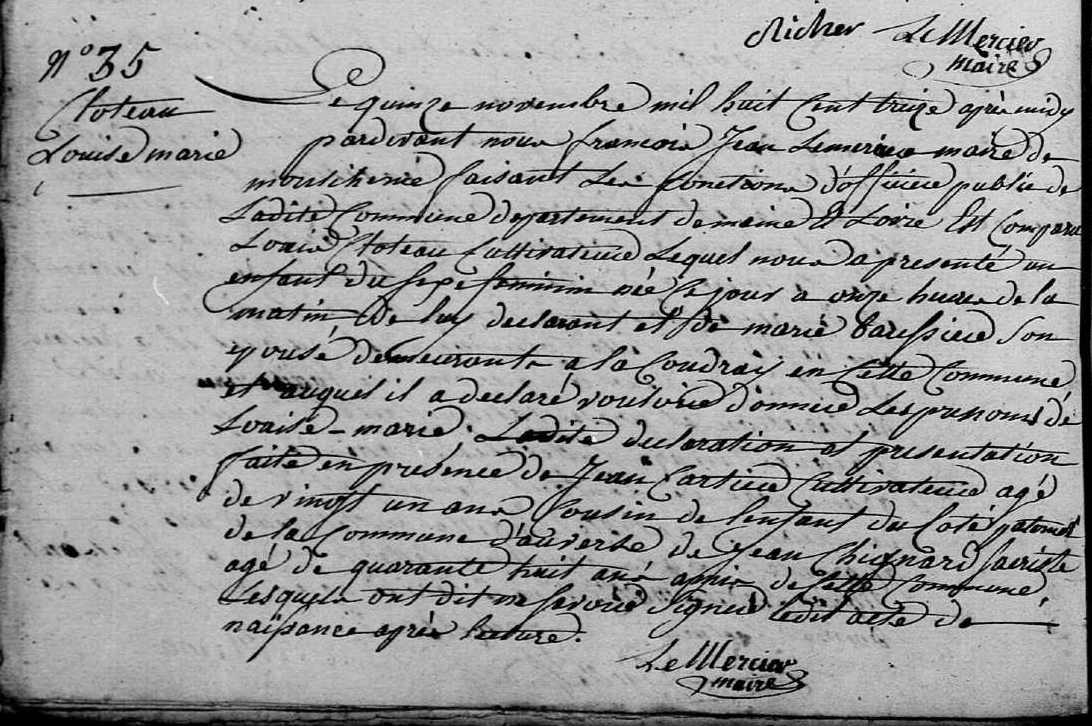 Richer Le Mercier
maire
n° 35
Cloteau
Louise marie
Le quinze novembre mil huit Cent treize après midy
pardevant nous francois Jean Lemercier maire de
mouliherne faisant Les fonctions d'officier public de
Ladite Commune departement de maine Et Loire Est Comparu
Louis Cloteau Cultivateur Lequel nous a presenté un
enfant du sexe feminin née Ce jour a onze heures de la
matin De luy declarant et de marie son
epouse demeurants a la Coudray en Cette Commune
et auquel il a declaré vouloir donner Les prenoms de
Louise-marie. Ladite declaration et presentation
faite en presence de Jean Cartier Cultivateur agé
de vingt un ans Cousin de l'enfant du Coté paternel
de la Commune d'auverse de Jean Chignard sacriste
agé de quarante huit ans amis de Cette Commune,
Lesquels ont dit ne savoir signer Ledit acte de
naissance après lecture.
Le Mercier
maire